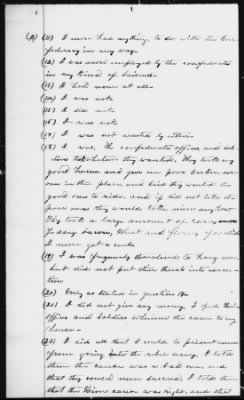 (2) (11) I never had anything to do with the Con-
federacy in any way
(12) I was never employed by the confederates
in any kind of business
(13) I had none at all
(14) I was not
(15) I did not
(16) I was not
(17) I was not arrested by either
(18) I was, The confederate officers and sol
diers took whatever they wanted. They took my
good horse and gave me poor broken
one in the place and said they wanted the
good ones to ride, and if did not like the
poor ones they would take
They took a large amount of
fodder, bacon, Wheat and
I never got a cent
(19) I was frequently threatened to hang me
but did not put their threats into execu-
tion
(20) Only as stated in question 18
(21) I did not give any money. I fed Union
officers and Soldiers whenever they came to my
house
(22) I did all that I could to prevent men
from going into the rebel army. I told
them the cause was a bad one, and
that they could never succeed. I told them
that the Union cause was right, and that